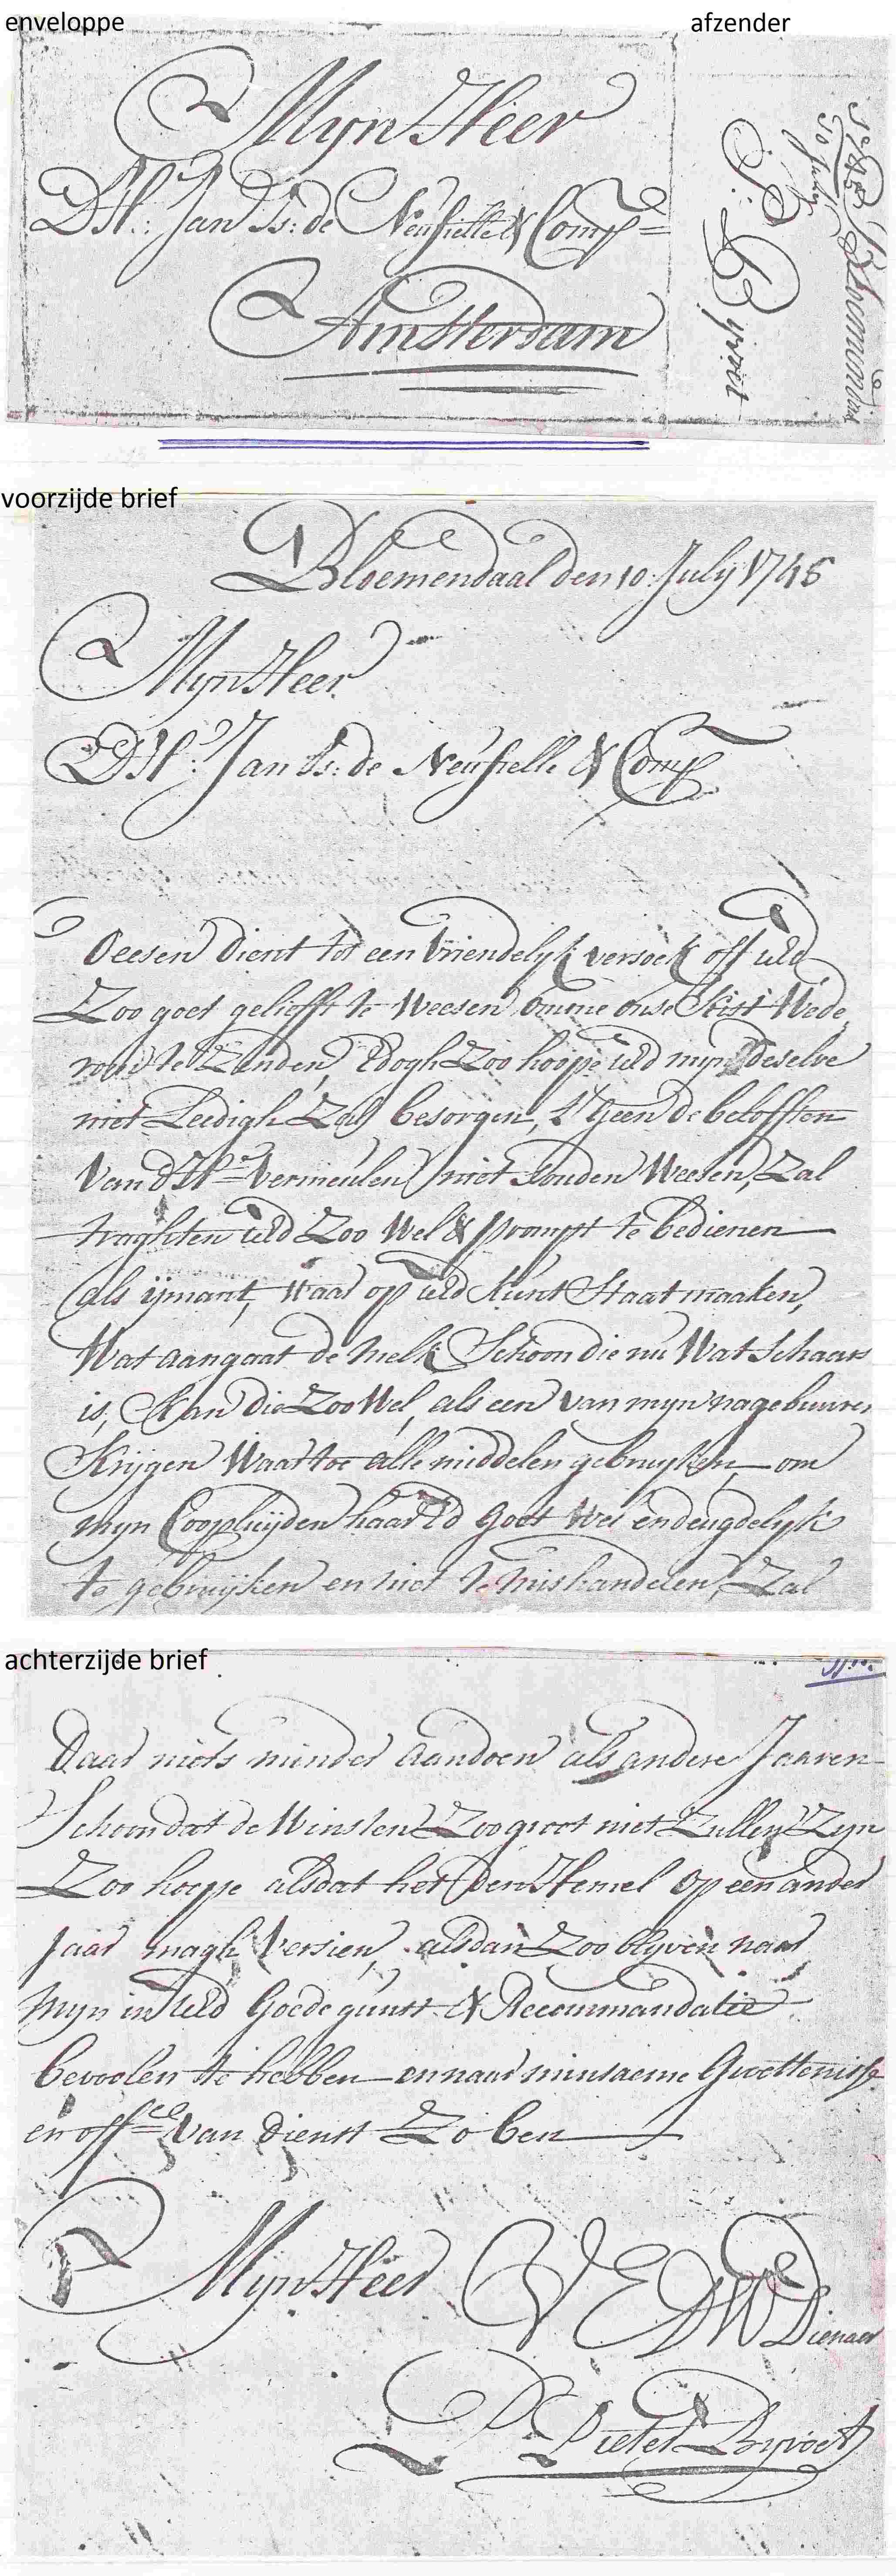 enveloppe
afzender
Mijn Heer
DHr: Jan Is: de Neufville & Comp
Amsterdam
P: Byvoet
10 July
voorzijde brief
Bloemendaal den 10: July 1745
Mijn Heer
DHr: Jan Is: de Neufville & Comp
Deesen dient tot een vriendelyk versoek off uld
Zoo goet gelieft te Weesen omme onse Kist Wede
rom te Zenden, Edogh Zoo hoope uld myn deselve
niet Leedigh Zal besorgen, 't geen de belofften
van d Hr Vermeulen niet Zouden Weesen, Zal
traghten uld Zoo Wel & prompt te bedienen
als ijmant, waar op uld kunt Staat maaken,
Wat aangaat de melk Schoon die nu Wat Schaars
is, Kan die Zoo Wel, als een van myn nagebuure
Krijgen Waartoe alle middelen gebruyken, om
myn Coopluijden haar Goet Wel en deugdelyk
te gebruijken en niet te mishandelen, Zal
achterzijde brief
Daar niets minder aandoen als andere Jaaren
Schoon dat de Winsten Zoo groot niet Zullen Zyn
Zoo hoope alsdat het Den Hemel op een ander
Jaar magh Versien, alsdan Zoo blyven naar
Myn in Uld Goede gunst & Recommandatie
bevoolen te hebben en naar minsaeme Groettenisse
en offce van Dienst Zo ben
Mijn Heer
UEDW Dienaar
Pieter Byvoet